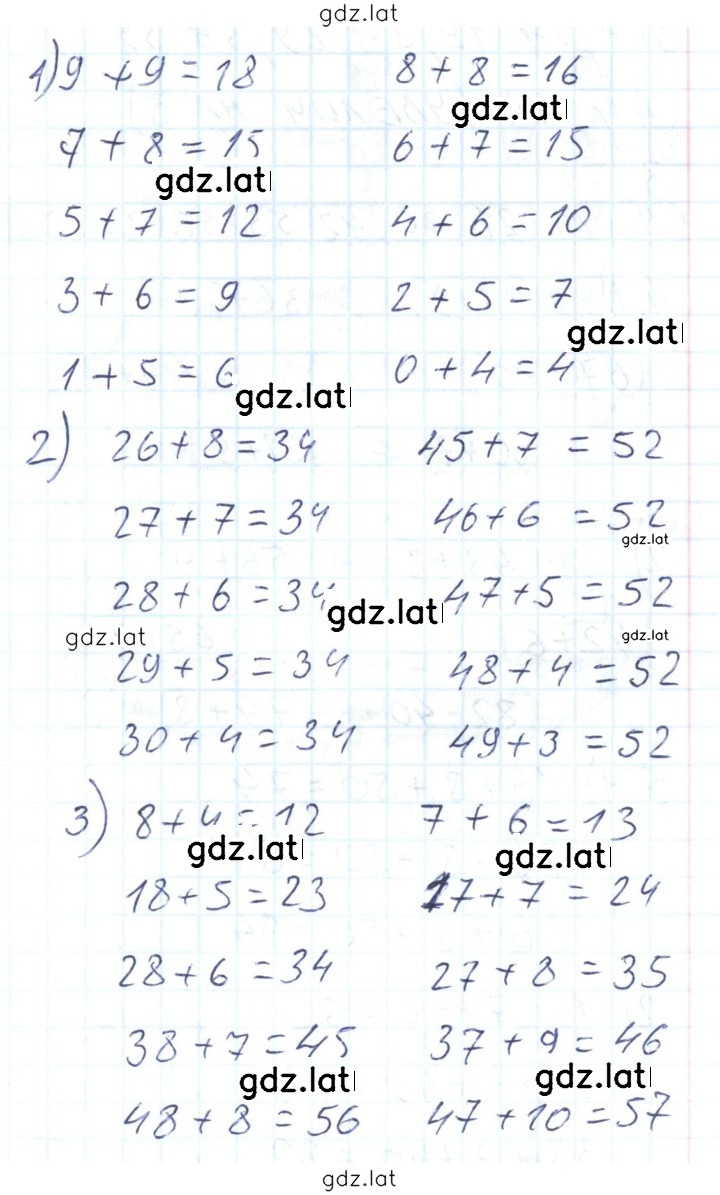 gdz.lat
1) 9 + 9 = 18 8 + 8 = 16
gdz.lat
7 + 8 = 15 6 + 7 = 15
gdz.lat
5 + 7 = 12 4 + 6 = 10
3 + 6 = 9 2 + 5 = 7
gdz.lat
1 + 5 = 6 0 + 4 = 4
gdz.lat
2) 26 + 8 = 34 45 + 7 = 52
27 + 7 = 34 46 + 6 = 52
gdz.lat
28 + 6 = 34 47 + 5 = 52
gdz.lat
gdz.lat gdz.lat
29 + 5 = 34 48 + 4 = 52
30 + 4 = 34 49 + 3 = 52
3) 8 + 4 = 12 7 + 6 = 13
gdz.lat gdz.lat
18 + 5 = 23 17 + 7 = 24
28 + 6 = 34 27 + 8 = 35
38 + 7 = 45 37 + 9 = 46
gdz.lat gdz.lat
48 + 8 = 56 47 + 10 = 57
gdz.lat